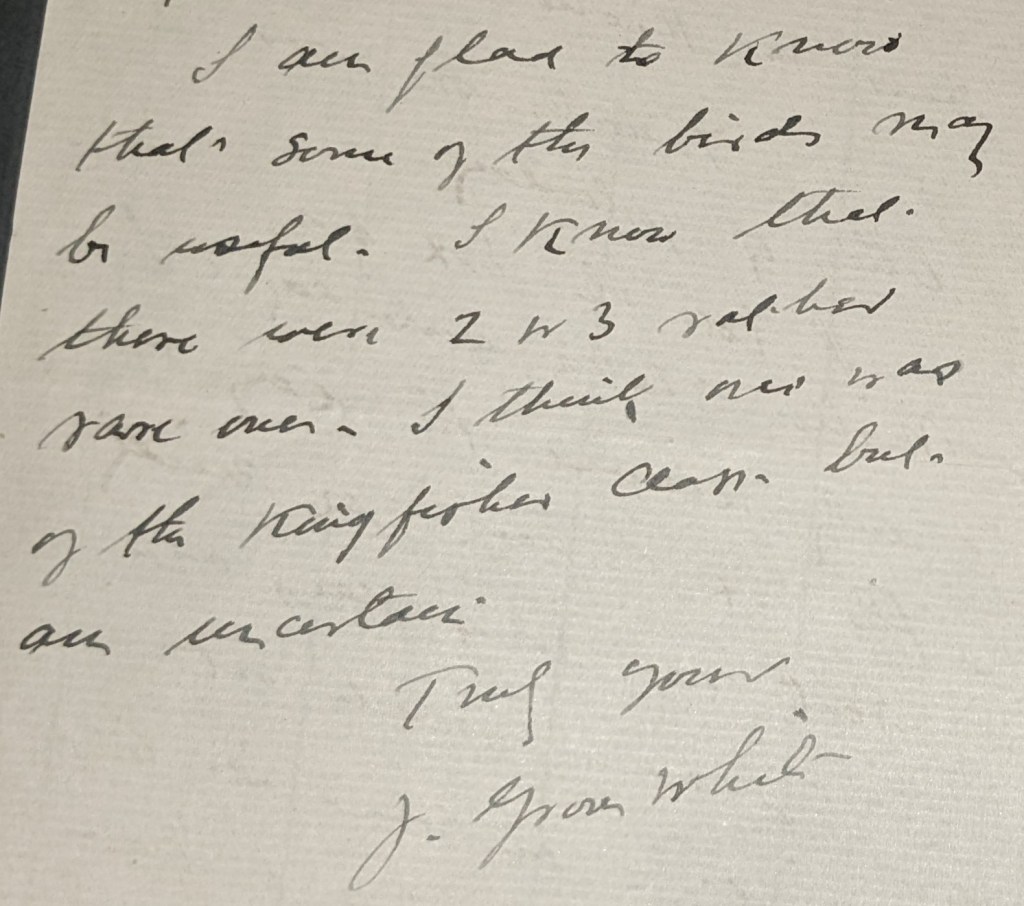 I am glad to know
that some of the birds may
be useful. I know that
there were 2 or 3 rather
rare ones. I think one was
of the Kingfisher class. but
am uncertain
Truly yours
J. Grove White